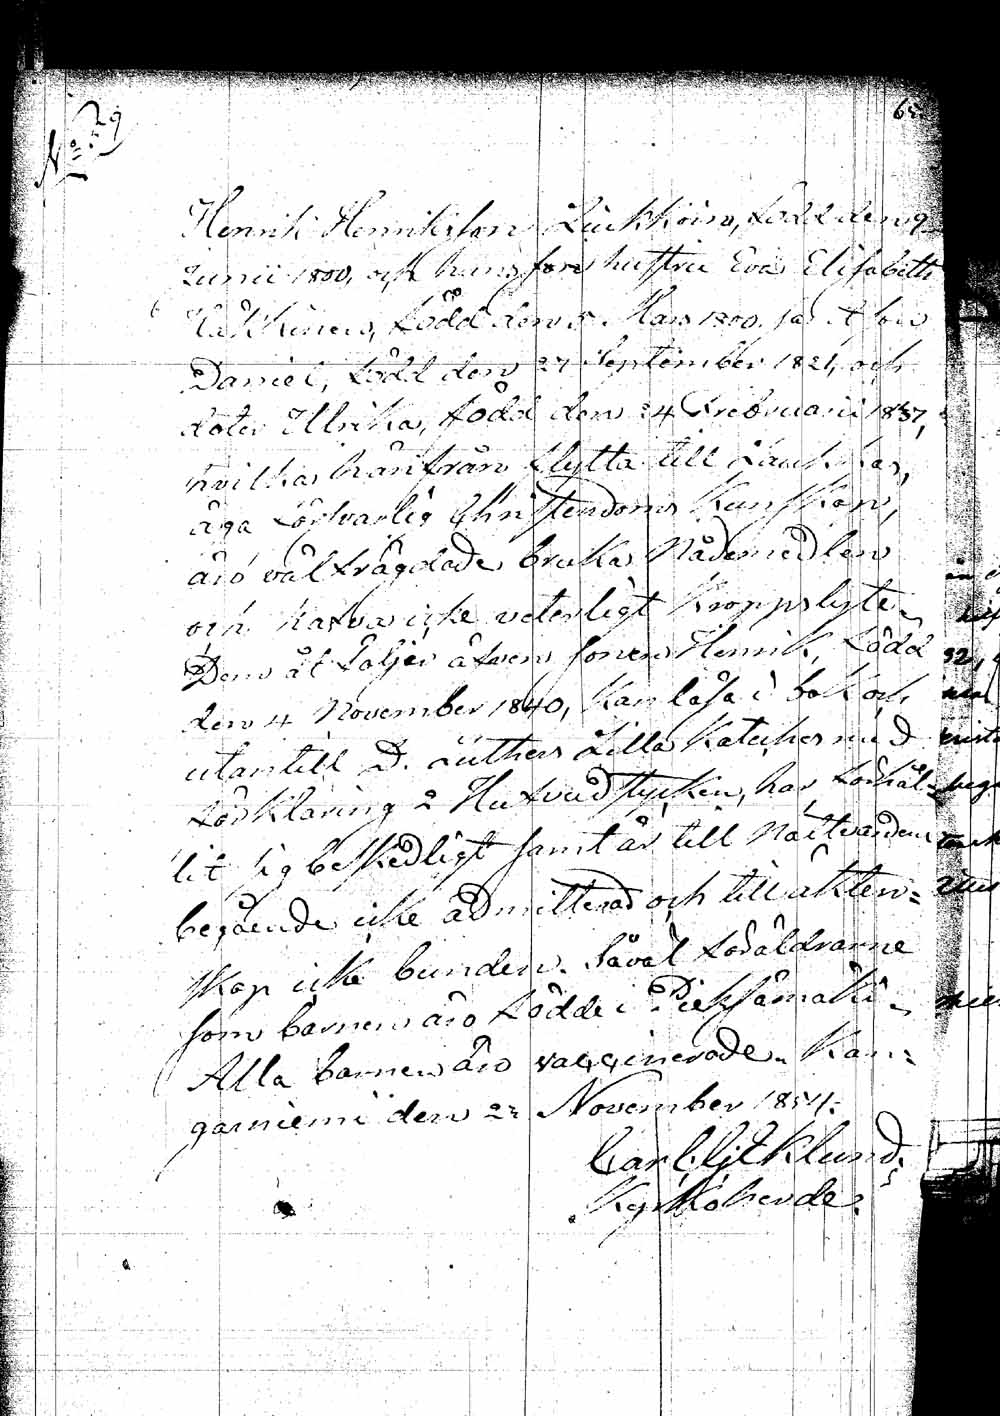 No 59
65.
Henrik Henriksson Liukkoin, född den 9
Junii 1800, och hans hustru Eva Elisabeth
Häkkinen, född den 5 Mars 1800, samt son
Daniel, född den 27 September 1821, och
doter Ulrika, född den 24 Februarii 1837,
hvilka härifrån flytta till Laukkas,
äga försvarlig Christendoms Kunskap,
äro väl frägdade, bruka Nådemedlen
och hafva icke veterligt Kroppslyte.
Dem åt följer äfven sonen Henrik, född
den 4 November 1840, kan läsa i bok och
utantill D. Luthers Lilla Kateches med
förklaring 2 Hufvudstycken, har förhål=
lit sig beskedligt samt är till Nattvarden
begående icke admitterad och till äkten=
skap icke bunden. Såväl föräldrarne
som barnen äro födde i Pieksämäki.
Alla barnen äro vaccinerade. Kan=
gasniemi den 22 November 1854.
Carl Ejt Klund.
Kyrkoherde.